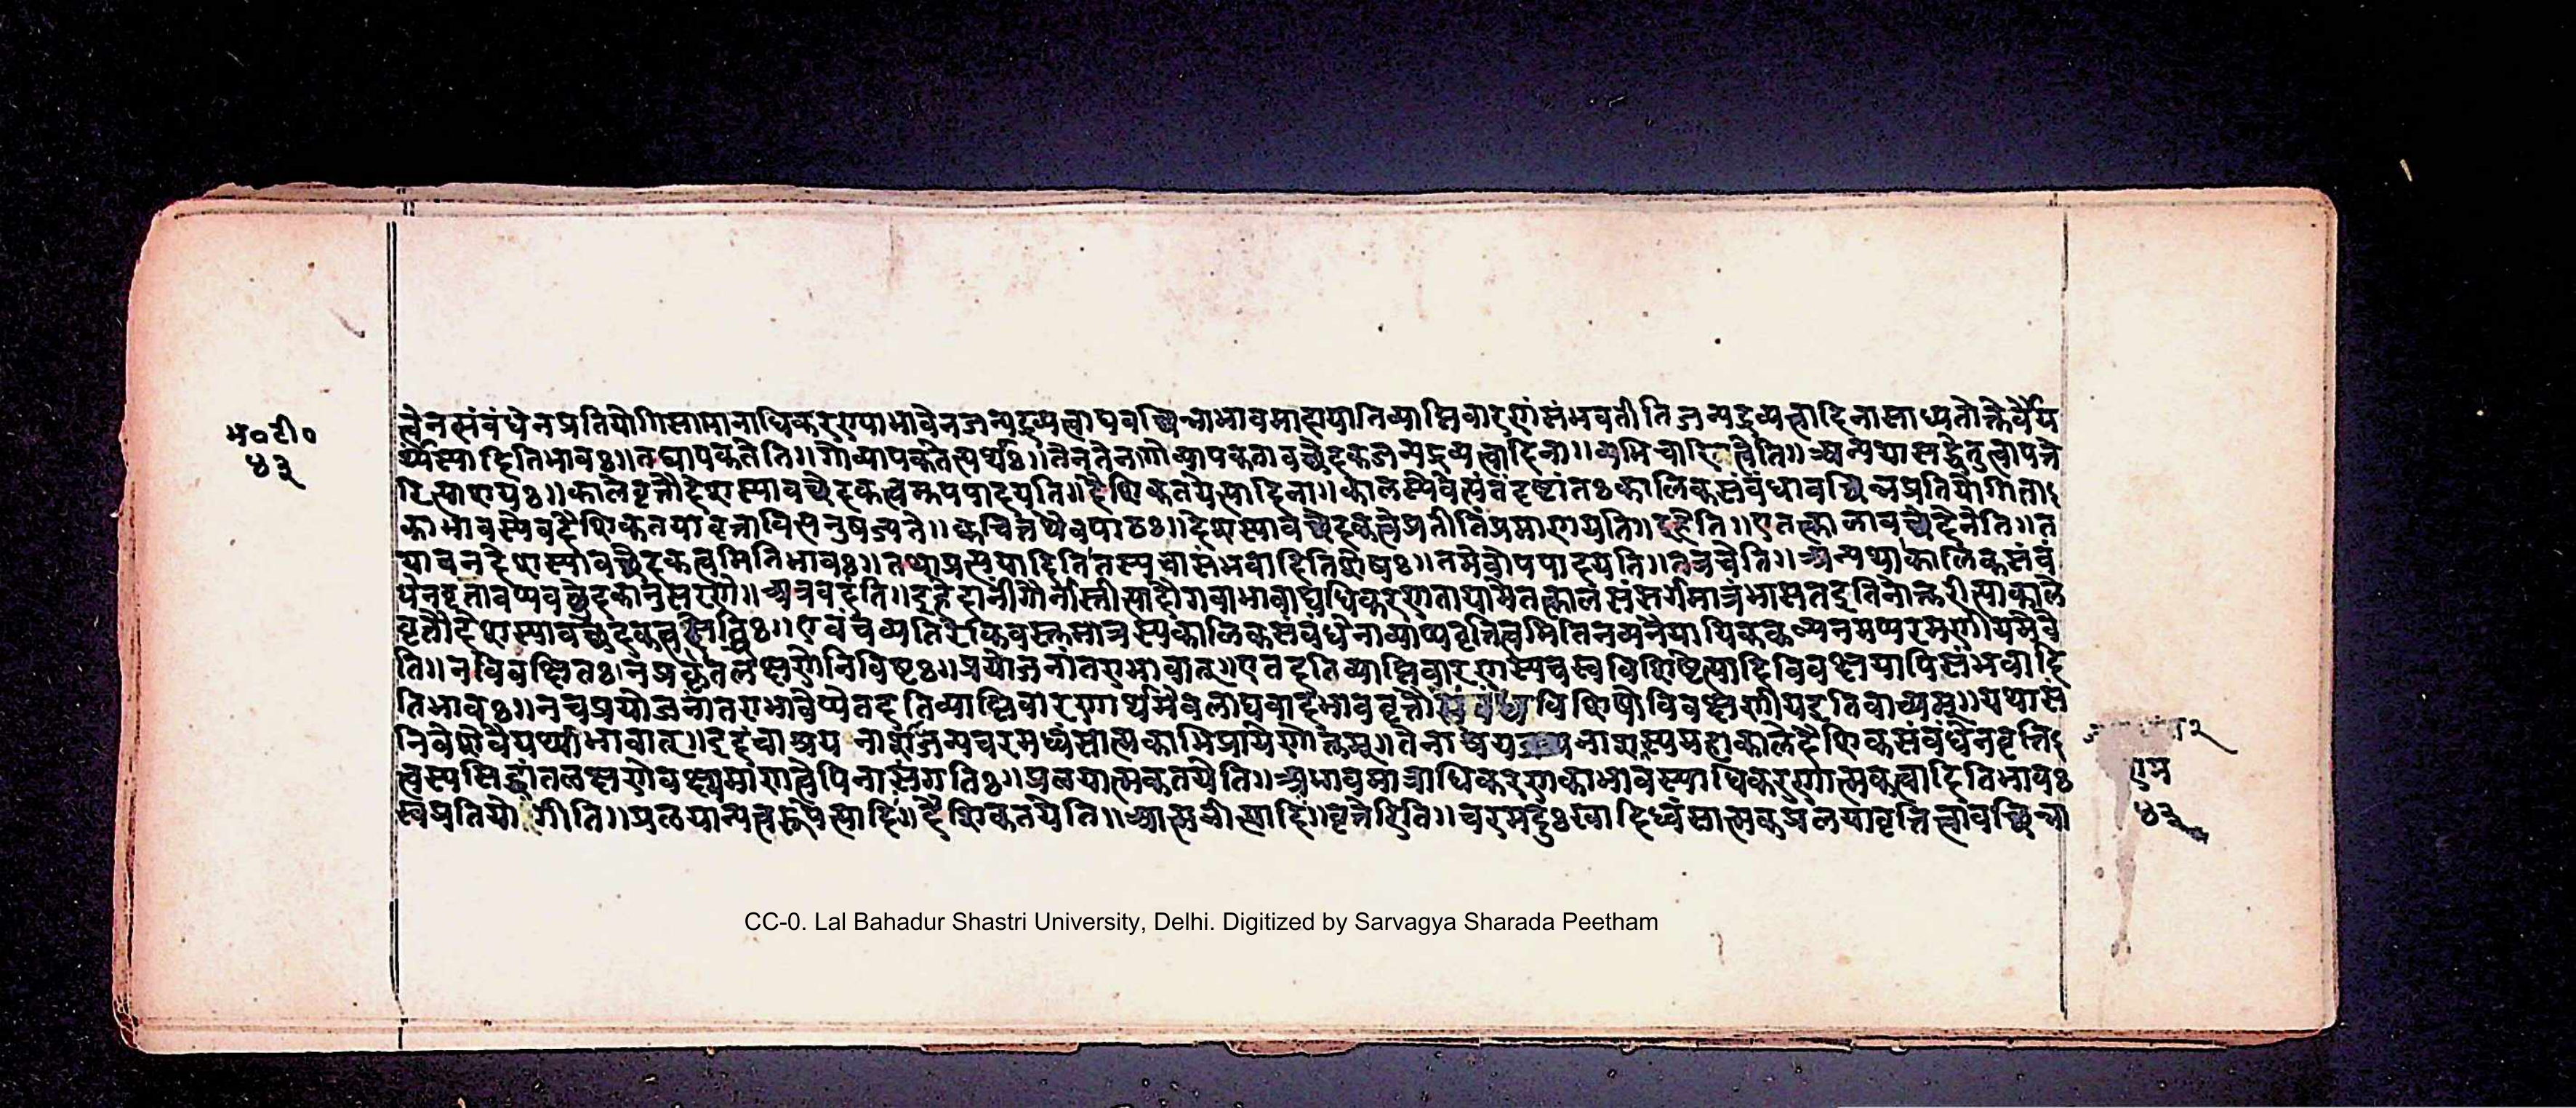 भ०टी०
४३
त्वेनसंबंधेनप्रतियोगिसामानाधिकरण्याभावेनजन्यद्रव्यत्वाद्यवच्छिन्नाभावमादायातिव्याप्तिवारणंसंभवतीतिजन्यद्रव्यत्वादिनासाध्यतोक्तेर्वैय
र्थ्यस्यादितिभावः॥तद्व्यापकतेति॥गोव्यापकतेत्यर्थः॥तेनतेनागोव्यापकतावच्छेदकजन्यद्रव्यत्वादिना॥व्यभिचारित्वेति॥अन्यथासद्धेतुत्वापत्ते
रित्याशयः॥कालेवृत्तौदेशस्यावच्छेदकत्वमुपपादयति॥दैशिकतयेत्यादिना॥कालस्येवेत्यंतंदृष्टांतःकालिकसंबंधावच्छिन्नप्रतियोगिता
काभावस्यैवदैशिकतयावृत्तावित्यनुषज्यते॥क्वचित्तथैवपाठः॥देशस्यावच्छेदकत्वेप्रतीतिंप्रमाणयति॥इहेति॥एतत्कालावच्छेदेनेति॥त
थावनदेशस्यावच्छेदकत्वमितिभावः॥तथाप्रत्ययादितितस्यचासंभवादितिशेषः॥तमेवोपपादयति॥नचेति॥अन्यथाकालिकसंबं
धेनवृत्तावप्यवच्छेदकानुसरणे॥अत्रवदंति॥इहेदानींगौर्नास्तीत्यादौगवाभावाद्यधिकरणतायामेतत्कालसंसर्गमात्रंभासतइतिनोक्तरीत्याकाले
वृत्तौदेशस्यावच्छेदकत्वसिद्धिः॥एवंचव्यतिरेकिवस्तुमात्रस्यकालिकसंबंधेनाव्याप्यवृत्तित्वमितिनव्यनैयायिककल्पनमप्यरमणीयमेवे
ति॥नविवक्षितःनप्रकृतलक्षणेनिविष्टः॥प्रयोजनांतराभावात्॥एतदतिव्याप्तिवारणस्यचस्वविशिष्टेत्यादिविवक्षयापिसंभवादि
तिभावः॥नचप्रयोजनांतराभावेप्येतदतिव्याप्तिवारणार्थमेवलाघवादभाववृत्तौसंबंधविशेषोविवक्षणीयइतिवाच्यम्॥यथासं
निवेशेवैयर्थ्याभावात्॥इदंचाश्रयनाशजन्यचरमध्वंसात्मकाभिप्रायेणोक्तम्॥तेनाश्रयनाशस्यमहाकालेदैशिकसंबंधेनवृत्ति
त्वस्यसिद्धांतलक्षणेवक्ष्यमाणत्वेपिनासंगतिः॥प्रलयात्मकतयेति॥अभावमात्राधिकरणकाभावस्याधिकरणात्मकत्वादितिभावः
स्वप्रतियोगीति॥प्रलयान्यत्वरूपेत्यादिः॥दैशिकतयेति॥आत्मनीत्यादिः॥वृत्तेरिति॥चरमदुःखादिध्वंसात्मकप्रलयावृत्तित्वावच्छिन्ना
राम
४३
CC-0. Lal Bahadur Shastri University, Delhi. Digitized by Sarvagya Sharada Peetham